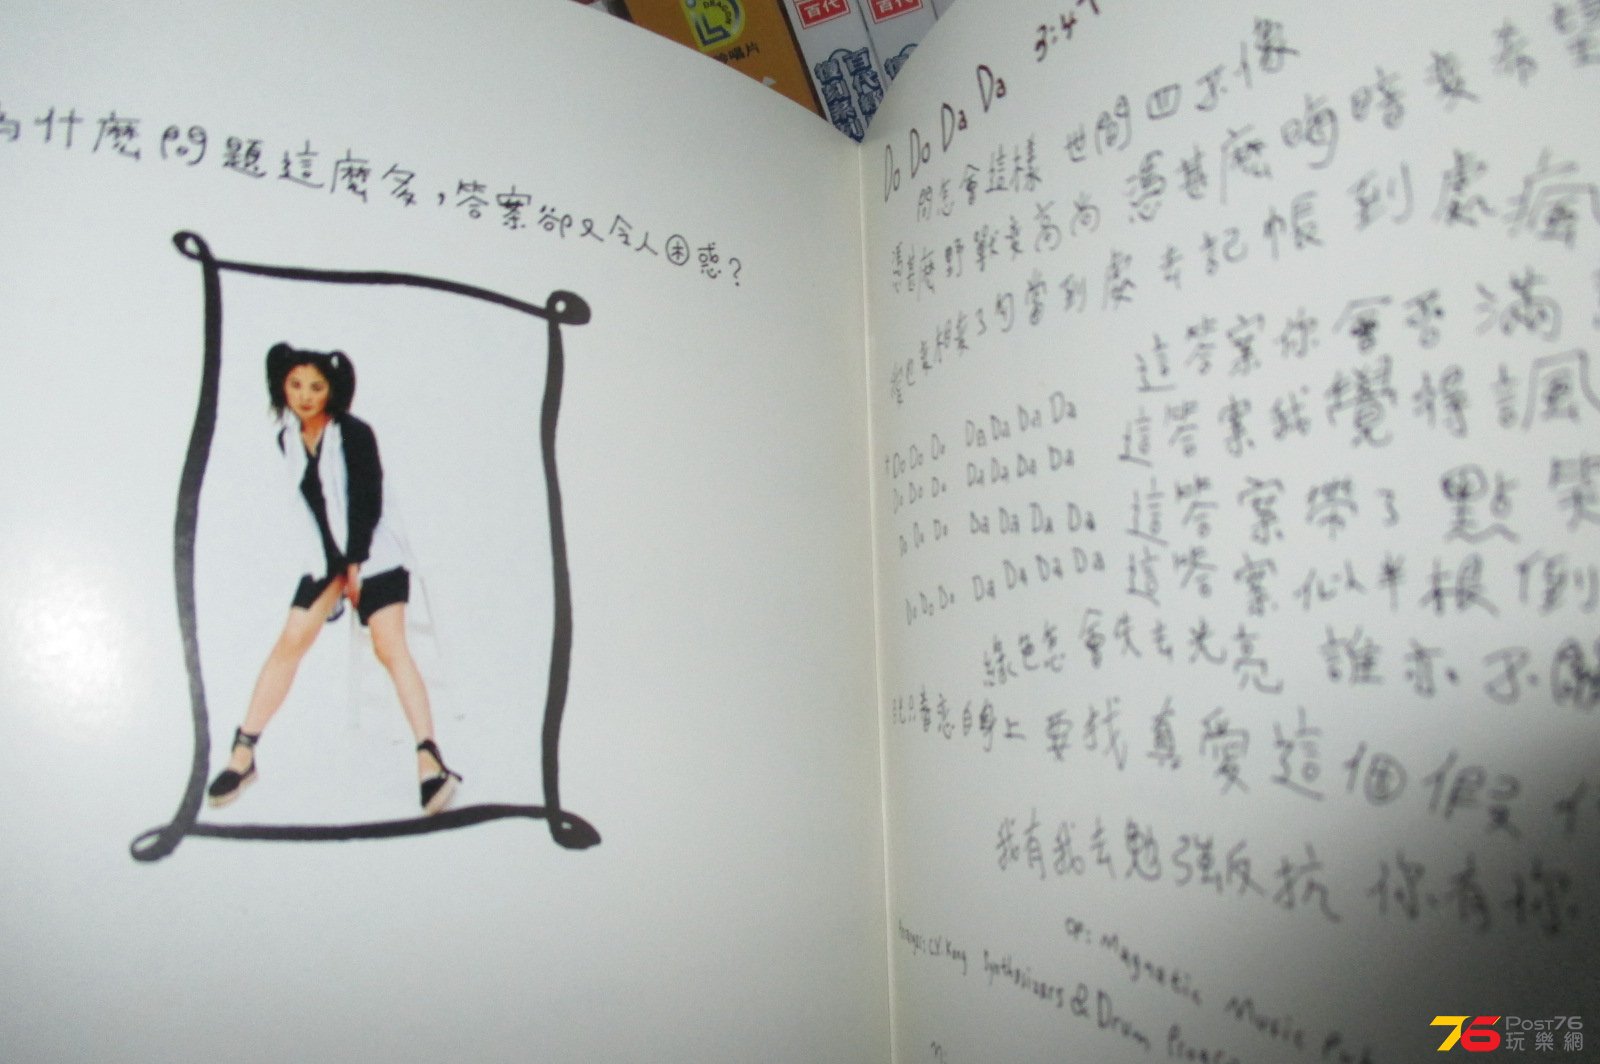 為什麼問題這麼多，答案卻又令人困惑？
唱片
百代
百代
復刻系列
百代
Do Do Da Da 3:47
問怎會這樣 世間四不像
憑甚麼野獸變高尚 憑甚麼晦暗變希望
變了勾當到處去記帳 到處瘋
這答案你會否滿
Do Do Do Da Da Da Da 這答案我覺得諷
Do Do Do Da Da Da Da
Do Do Do Da Da Da Da 這答案帶了點笑
Do Do Do Da Da Da Da 這答案似半根倒
綠色怎會失去光亮 誰亦不
自身上 要找真愛這個假
我有我去勉強反抗 你有你
OP: Magnetic Music
C.Y. Kong Synthesizers & Drum
POST76
玩樂網